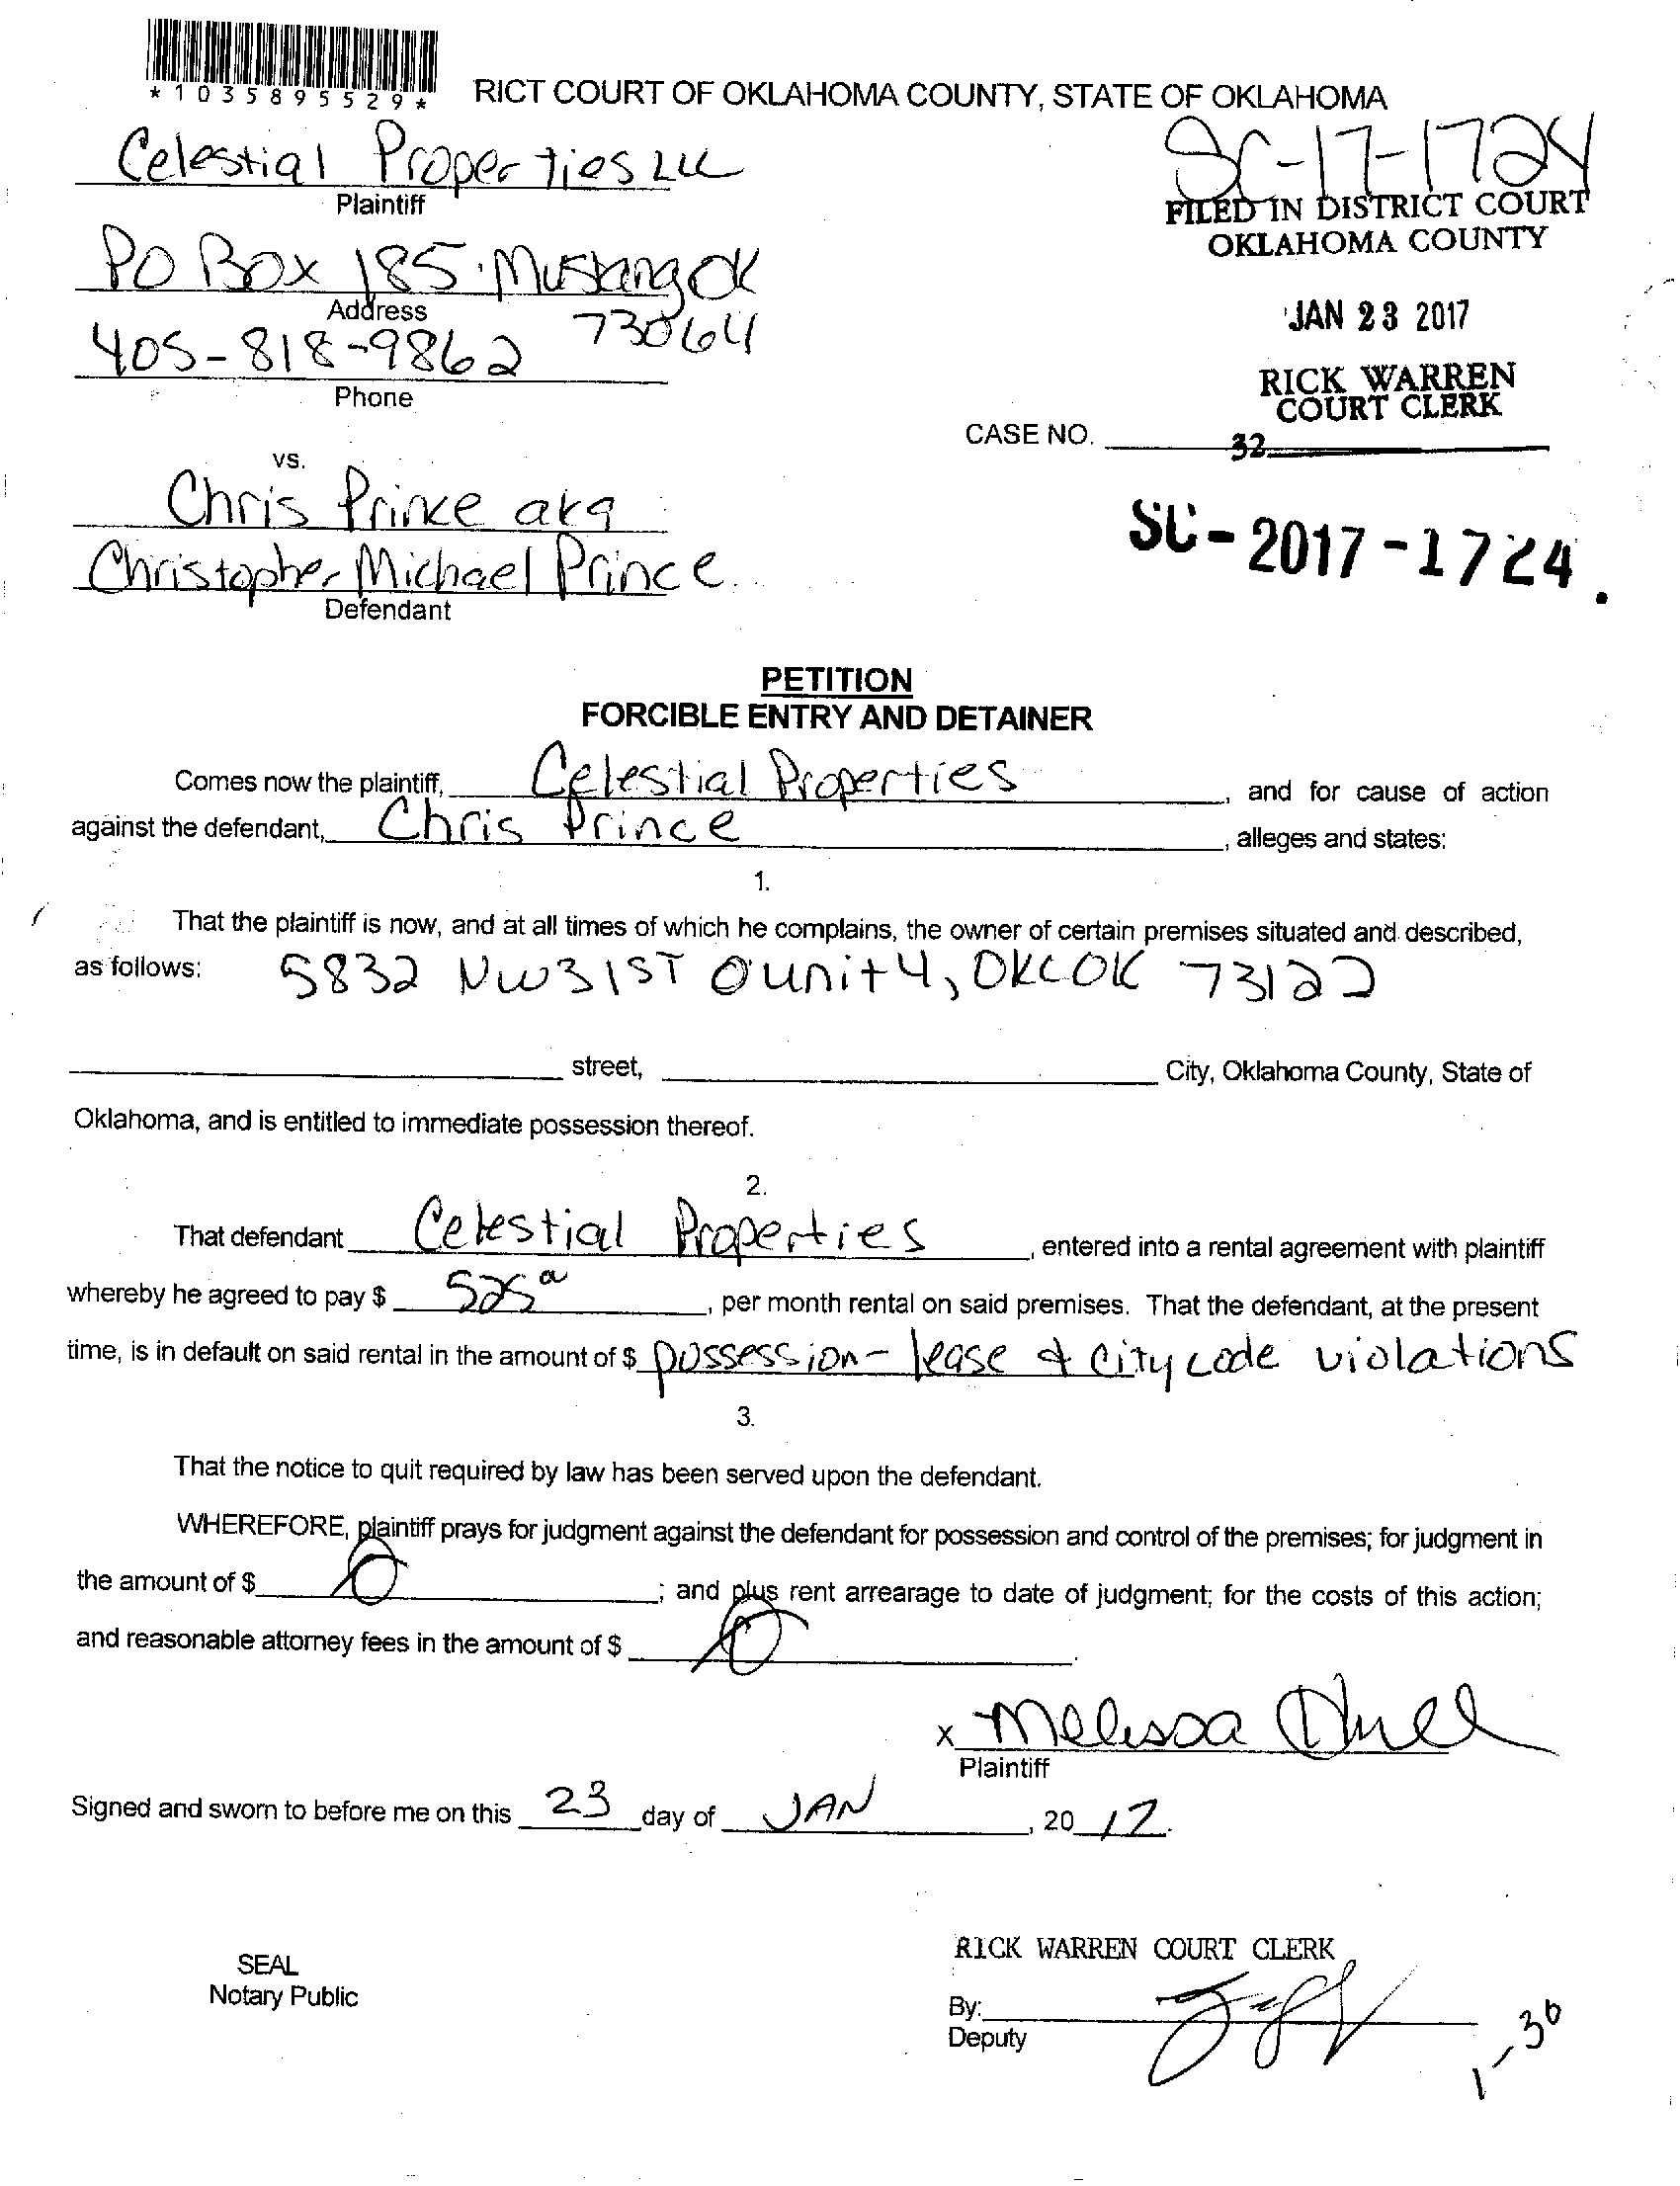 *1035895529*
RICT COURT OF OKLAHOMA COUNTY, STATE OF OKLAHOMA
Celestial Properties LLC
Plaintiff
SC-17-1724
FILED IN DISTRICT COURT
OKLAHOMA COUNTY
PO Box 185 Mustang OK
Address
73064
JAN 23 2017
405-818-9862
Phone
RICK WARREN
COURT CLERK
CASE NO.
32
vs.
Chris Prince aka
Christopher Michael Prince
Defendant
SC-2017-1724
PETITION
FORCIBLE ENTRY AND DETAINER
Comes now the plaintiff, Celestial Properties, and for cause of action
against the defendant, Chris Prince, alleges and states:
1.
That the plaintiff is now, and at all times of which he complains, the owner of certain premises situated and described,
as follows: 5832 NW 31ST unit 4, OKC OK 73122
street, City, Oklahoma County, State of
Oklahoma, and is entitled to immediate possession thereof.
2.
That defendant Celestial Properties, entered into a rental agreement with plaintiff
whereby he agreed to pay $ 525, per month rental on said premises. That the defendant, at the present
time, is in default on said rental in the amount of $ possession- lease & City code violations
3.
That the notice to quit required by law has been served upon the defendant.
WHEREFORE, plaintiff prays for judgment against the defendant for possession and control of the premises; for judgment in
the amount of $ 0; and plus rent arrearage to date of judgment; for the costs of this action;
and reasonable attorney fees in the amount of $ 0.
x Melissa
Plaintiff
Signed and sworn to before me on this 23 day of JAN, 20 17.
RICK WARREN COURT CLERK
SEAL
Notary Public
By:
Deputy
1-30